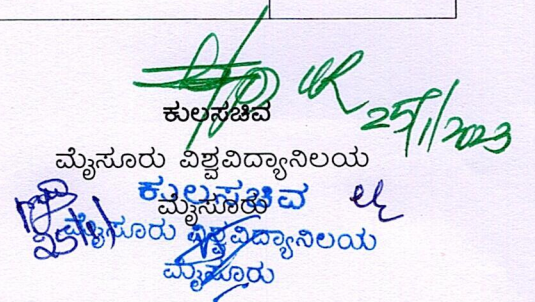 25/1/2023
ಕುಲಸಚಿವ
ಮೈಸೂರು ವಿಶ್ವವಿದ್ಯಾನಿಲಯ
ಮೈಸೂರು
ಕುಲಸಚಿವ
ಮೈಸೂರು ವಿಶ್ವವಿದ್ಯಾನಿಲಯ
ಮೈಸೂರು